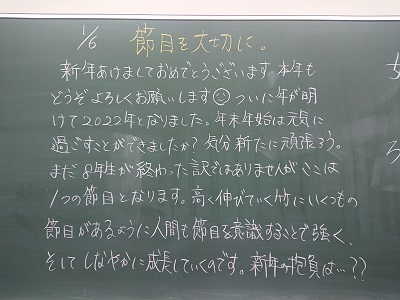 1/6 節目を大切に。
新年あけましておめでとうございます。本年も
どうぞよろしくお願いします☺ついに年が明
けて2022年となりました。年末年始は元気に
過ごすことができましたか？気分新たに頑張ろう。
まだ8年生が終わった訳ではありませんがここは
1つの節目となります。高く伸びていく竹にいくつもの
節目があるように人間も節目を意識することで強く、
そしてしなやかに成長していくのです。新年の抱負は…？？